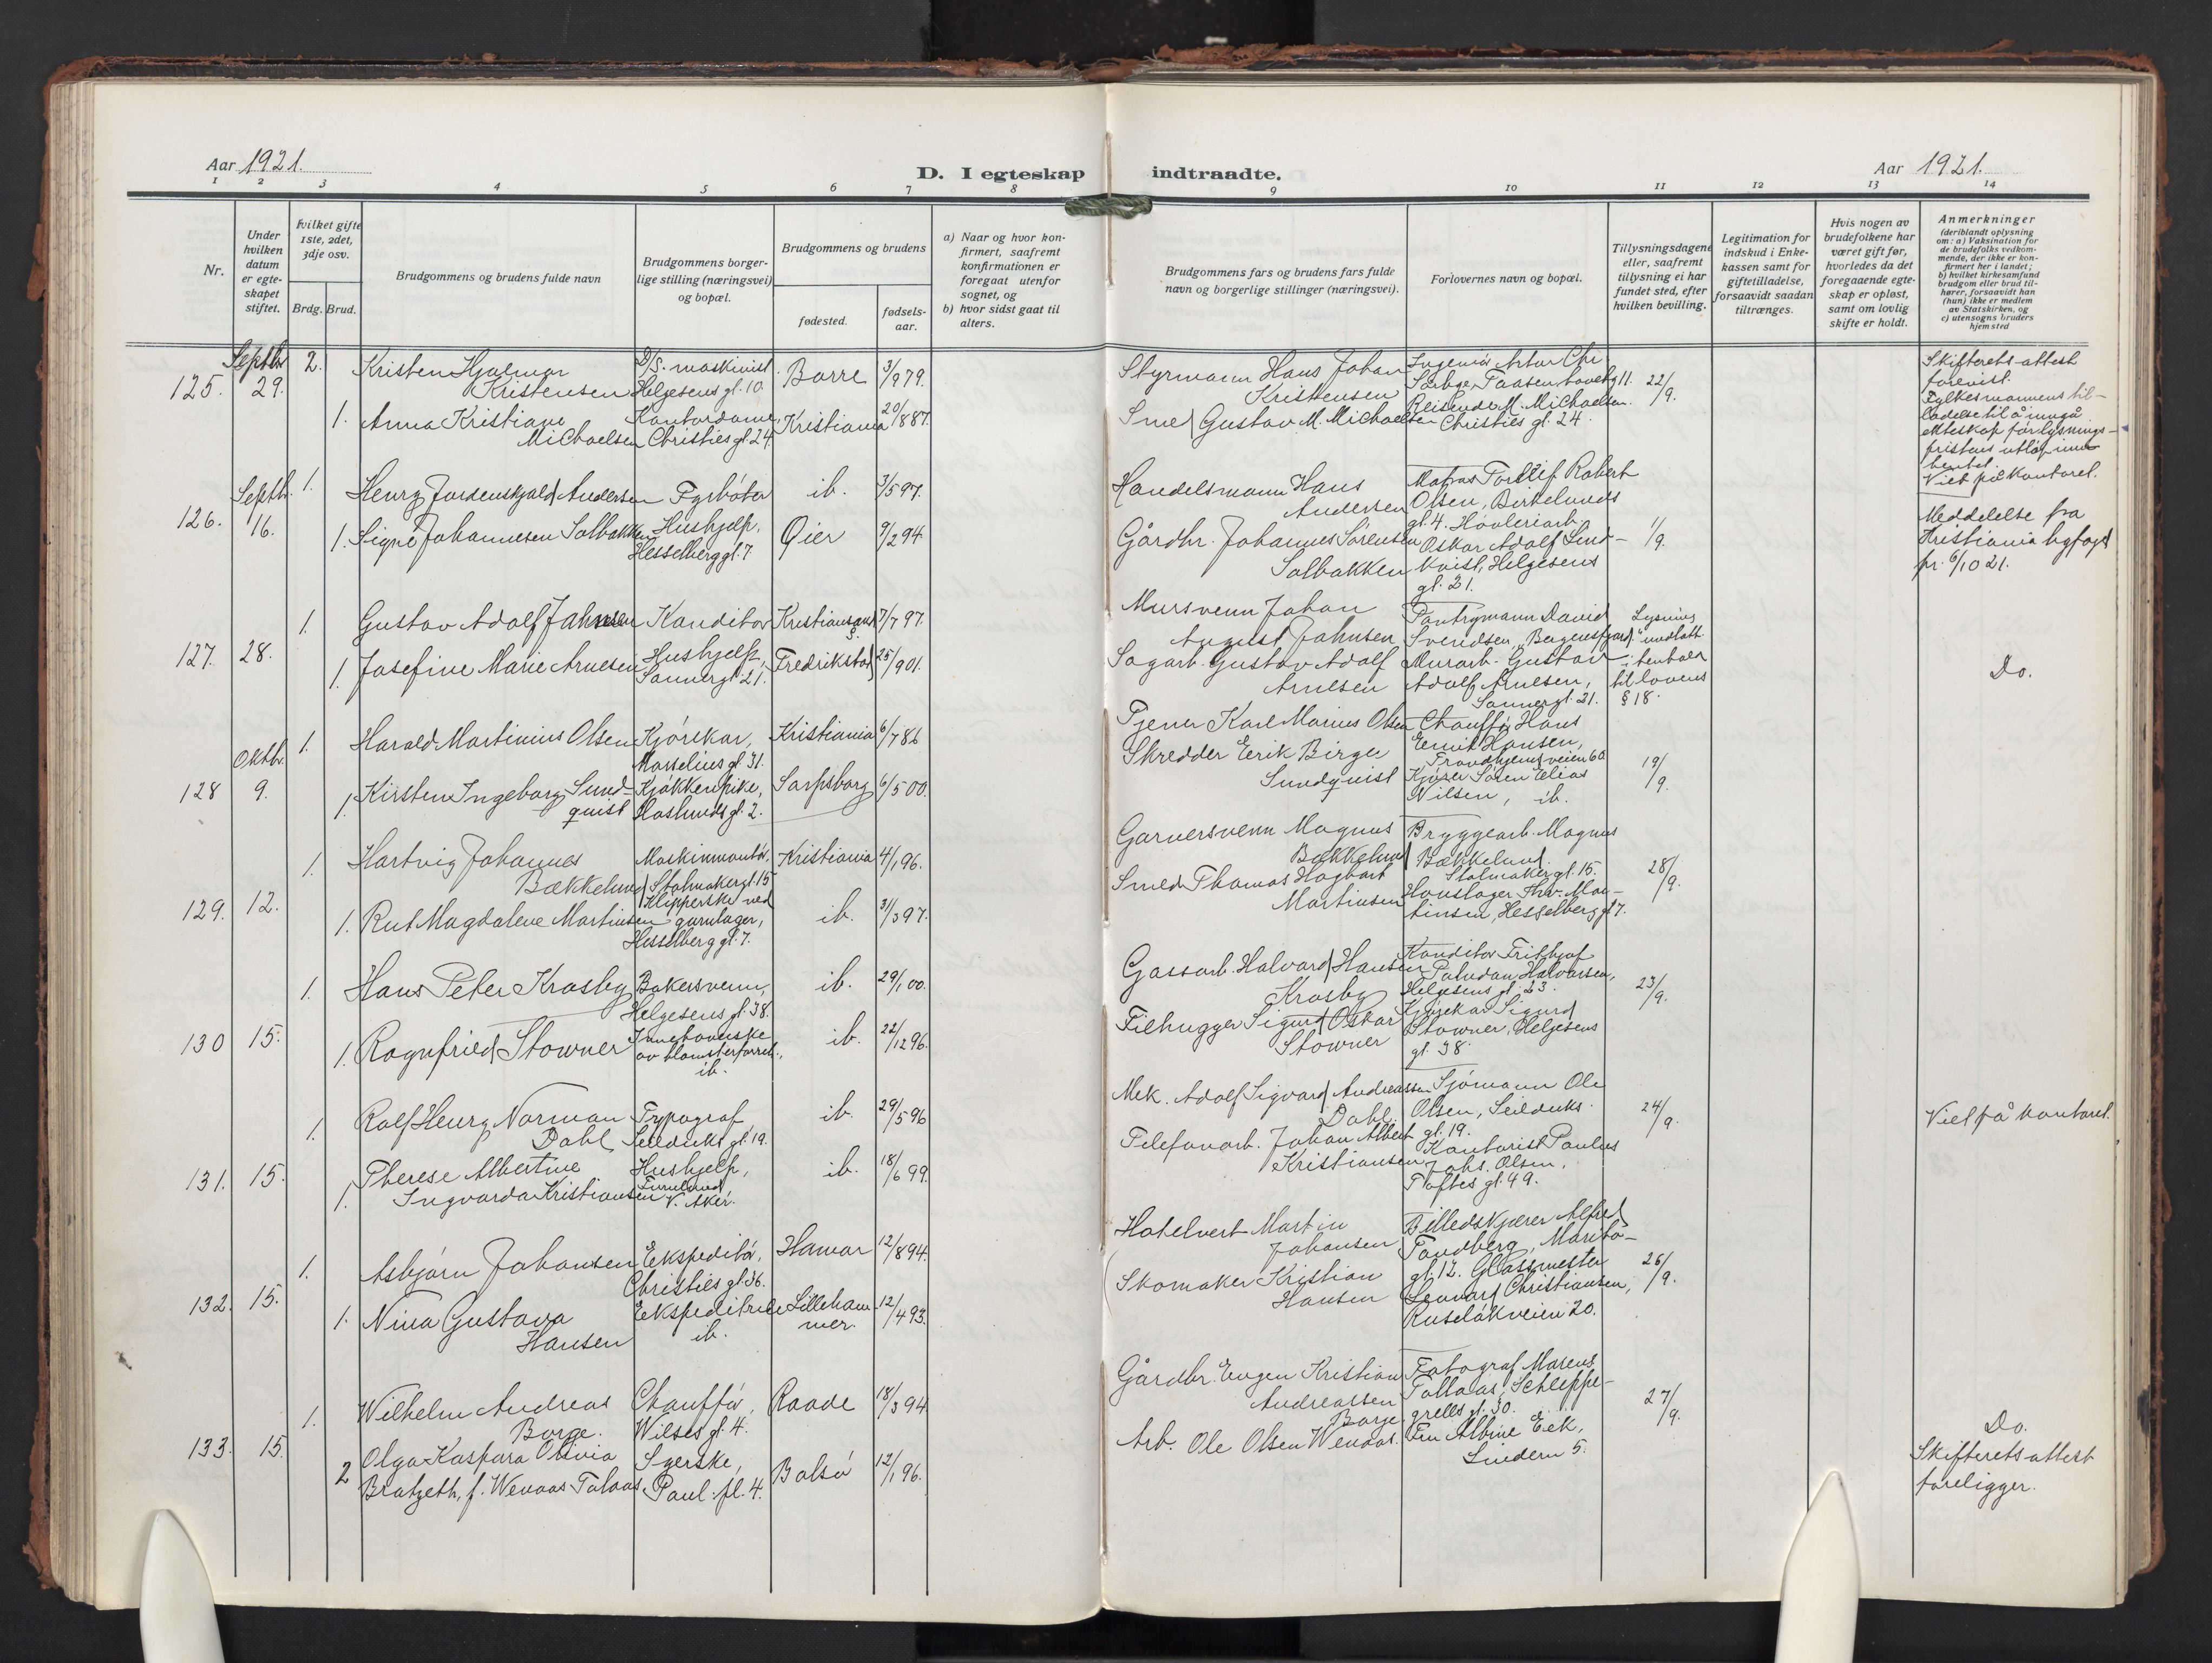 Aar 1921.
D. I egteskap indtraadte.
Aar 1921.
1 2 3 4 5 6 7 8 9 10 11 12 13 14
Nr.
Under hvilken datum er egte-skapet stiftet.
hvilket gifte 1ste, 2det, 3dje osv.
Brdg. Brud.
Brudgommens og brudens fulde navn
Brudgommens borger-lige stilling (næringsvei) og bopæl.
Brudgommens og brudens
fødested.
fødsels-aar.
a) Naar og hvor kon-firmert, saafremt konfirmationen er foregaat utenfor sognet, og
b) hvor sidst gaat til alters.
Brudgommens fars og brudens fars fulde navn og borgerlige stillinger (næringsvei).
Forlovernes navn og bopæl.
Tillysningsdagene eller, saafremt tillysning ei har fundet sted, efter hvilken bevilling.
Legitimation for indskud i Enke-kassen samt for giftetilladelse, forsaavidt saadan tiltrænges.
Hvis nogen av brudefolkene har været gift før, hvorledes da det foregaaende egte-skap er opløst, samt om lovlig skifte er holdt.
Anmerkninger (deriblandt oplysning om: a) Vaksination for de brudefolks vedkom-mende, der ikke er kon-firmert her i landet; b) hvilket kirkesamfund brudgom eller brud til-hører, forsaavidt han (hun) ikke er medlem av Statskirken, og c) utensogns bruders hjemsted
125. Septbr. 29. 2. Kristen Hjalmar Kristensen
D/S. maskinist Helgesens gt. 10.
Borre 3/9 79.
1. Anna Kristiane Michaelsen
Kontordame, Christies gt. 24
Kristiania 20/1 887.
Styrmann Hans Johan Kristensen
Smed Gustav M. Michaelsen
Ingeniør Artur Chr.
Reisende M. Michaelsen. Christies gt. 24.
22/9.
Skifterets attest forevist.
Fylkesmannens til-
ladelse til å inngå
ekteskap før lysnings-
fristens utløp inn-
hentet.
Viet på kontoret.
126. Septb. 16. 1. Henry Jordenskjold Andersen
Fyrbøter
ib. 3/5 97.
1. Signe Johannesen Solbakken
Hushjelp, Hesselberg gt. 7
Øier 9/2 94
Handelsmann Hans Andersen
Gårdbr. Johannes Sørensen Solbakken
Matros Tordlif Robert Olsen, Birkelunds gt. 4. Høvleriarb. Oskar Adolf Lind-kvist, Helgesens gt. 21.
1/9.
Meddelelse fra
Kristiania byfogd
pr. 6/10 21.
127. 28. 1. Gustav Adolf Jahnsen
Konditor
Kristiansand S. 7/7 97.
1. Josefine Marie Arnesen
Hushjelp, Sannergt. 21.
Fredrikstad 25/9 01.
Mursvenn Johan August Jahnsen
Sagarb. Gustav Adolf Arnesen
Pantrymann David Svendsen, "Bergensfjord". Murarb. Gustav Adolf Arnesen, Sannergt. 21.
Lysning undlatt i henhold til lovens § 18.
Do.
128 Oktbr. 9. 1. Harald Martinius Olsen
Kjørekar, Marselius gt. 31.
Kristiania 6/7 86
1. Kirsten Ingeborg Sund-quist
Kjøkkenpike, Haslunds gt. 2.
Sarpsborg 6/5 00.
Tjener Karl Marius Olsen
Skredder Erik Birger Sundquist
Chauffør Hans Ernit Hansen, Trondhjemsveien 60.
Kjører Søren Elias Nilsen, ib.
19/9.
129. 12. 1. Hartvig Johannes Bækkelund
Maskinmontør, Stolmakergt. 15
Kristiania 4/1 96.
1. Rut Magdalene Martinsen
Klipperske ved garnlager, Hesselberg gt. 7.
ib. 31/3 97.
Garversvenn Magnus Bækkelund
Smed Thomas Hagbart Martinsen
Bryggearb. Magnus Bækkelund. Stolmakergt. 15.
Thv. Mar-tinsen, Hesselberg gt. 7.
28/9.
130 15. 1. Hans Peter Krosby
Bakersvenn, Helgesens gt. 38.
ib. 29/1 00.
1. Ragnfried Stowner
Innehaverske av blomsterforretn., ib.
ib. 22/12 96.
Gassarb. Halvard Hansen Krosby
Filhugger Sigurd Oskar Stowner
Konditor Frithjof Paludan Halvorsen, Helgesens gt. 23.
Kjørekar Sigurd Stowner, Helgesens gt. 38.
23/9.
131. 15. 1. Ralf Henry Norman Dahl
Typograf Seilduks gt. 19.
ib. 29/5 96
1. Therese Albertine Ingvarda Kristiansen
Hushjelp, Furulund V. Aker.
ib. 18/6 99.
Mek. Adolf Sigvard Andreassen Dahl
Telefonarb. Johan Albert Kristiansen
Sjømann Ole Olsen, Seilduks gt. 19.
Kontorist Paulus Johs. Olsen, Toftes gt. 49.
24/9.
Viet på kontoret.
132. 15. 1. Asbjørn Johansen
Ekspeditør, Christies gt. 36.
Hamar 12/8 94.
1. Nina Gustava Hansen
Ekspeditrise ib.
Lilleham-mer. 12/4 93.
Hotelvert Martin Johansen
Skomaker Kristian Hansen
Billedskjærer Alfred Tandberg, Maribo-gt. 12. Glassmester Lennard Christiansen, Ruseløkveien 20.
26/9.
133. 15. 1. Wilhelm Andreas Borge.
Chauffør, Wilses gt. 4.
Raade 18/3 94
2 Olga Kaspara Olivia Bratzeth, f. Wenaas Talaas
Syerske, Paul. pl. 4.
Bolsø 12/1 96.
Gårdbr. Eugen Kristian Andreassen Borge.
Arb. Ole Olsen Wenaas.
Fotograf Marent Tollaas, Schleppe-grells gt. 30.
Fru Albine Eek, Lindern 5.
27/9.
Do.
Skifterets attest
foreligger.